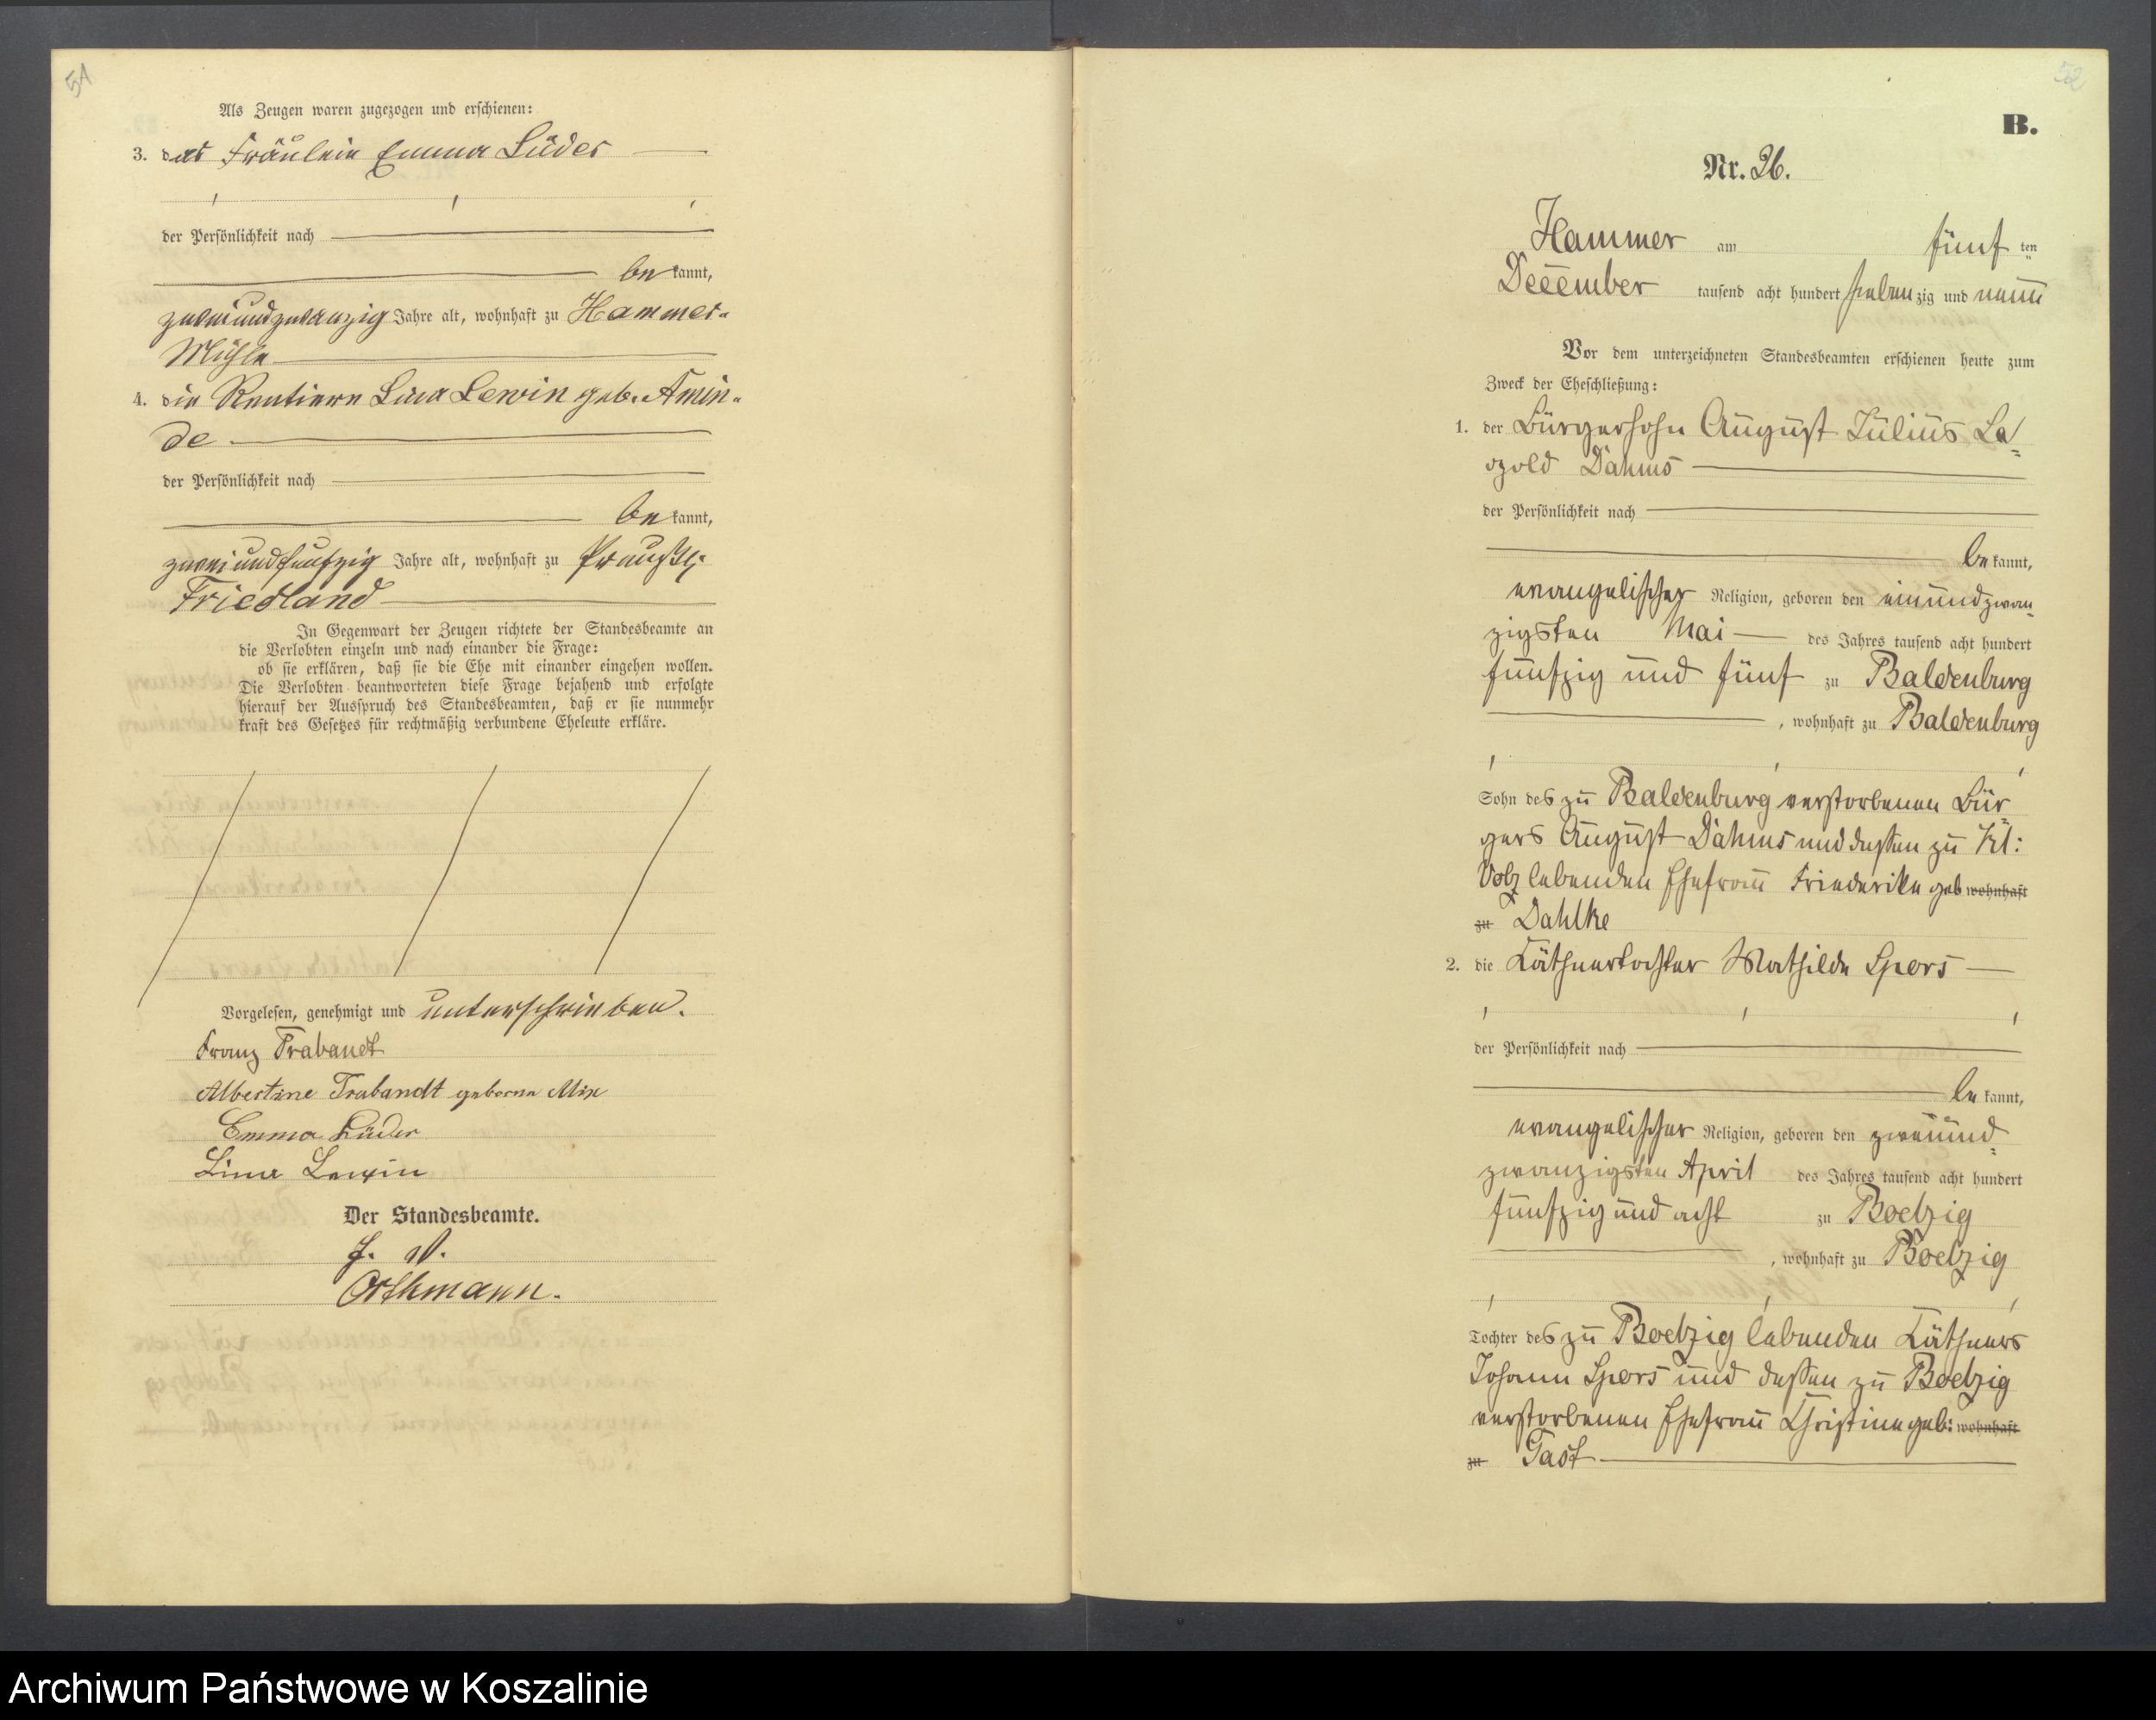 51
Als Zeugen waren zugezogen und erschienen:
3. das Fräulein Emma Lüder
der Persönlichkeit nach
bekannt,
zweiundzwanzig Jahre alt, wohnhaft zu Hammer-
Mühle
4. die Rentiere Lina Lewin geb. Amin-
de
der Persönlichkeit nach
bekannt,
zweiundfunfzig Jahre alt, wohnhaft zu Preußsch:
Friedland
In Gegenwart der Zeugen richtete der Standesbeamte an
die Verlobten einzeln und nach einander die Frage:
ob sie erklären, daß sie die Ehe mit einander eingehen wollen.
Die Verlobten beantworteten diese Frage bejahend und erfolgte
hierauf der Ausspruch des Standesbeamten, daß er sie nunmehr
kraft des Gesetzes für rechtmäßig verbundene Eheleute erkläre.
Vorgelesen, genehmigt und unterschrieben.
Franz Trabandt
Albertine Trabandt geborne Mix
Emma Lüder
Lina Lewin
Der Standesbeamte.
J. V.
Orthmann.
52
B.
Nr. 26.
Hammer am fünften
December tausend acht hundert siebenzig und neun
Vor dem unterzeichneten Standesbeamten erschienen heute zum
Zweck der Eheschließung:
1. der Bürgersohn August Julius Le-
opold Dahms
der Persönlichkeit nach
bekannt,
evangelischer Religion, geboren den einundzwan-
zigsten Mai des Jahres tausend acht hundert
funfzig und fünf zu Baldenburg
, wohnhaft zu Baldenburg
Sohn des zu Baldenburg verstorbenen Bür-
gers August Dahms und dessen zu Kl:
Volz lebenden Ehefrau Friederike geb wohnhaft
zu Dahlke
2. die Käthnertochter Mathilde Spors
der Persönlichkeit nach
bekannt,
evangelischer Religion, geboren den zweiund-
zwanzigsten April des Jahres tausend acht hundert
funfzig und acht zu Boelzig
, wohnhaft zu Boelzig
Tochter des zu Boelzig lebenden Käthners
Johann Spors und dessen zu Boelzig
verstorbenen Ehefrau Christine geb: wohnhaft
zu Gast
Archiwum Państwowe w Koszalinie